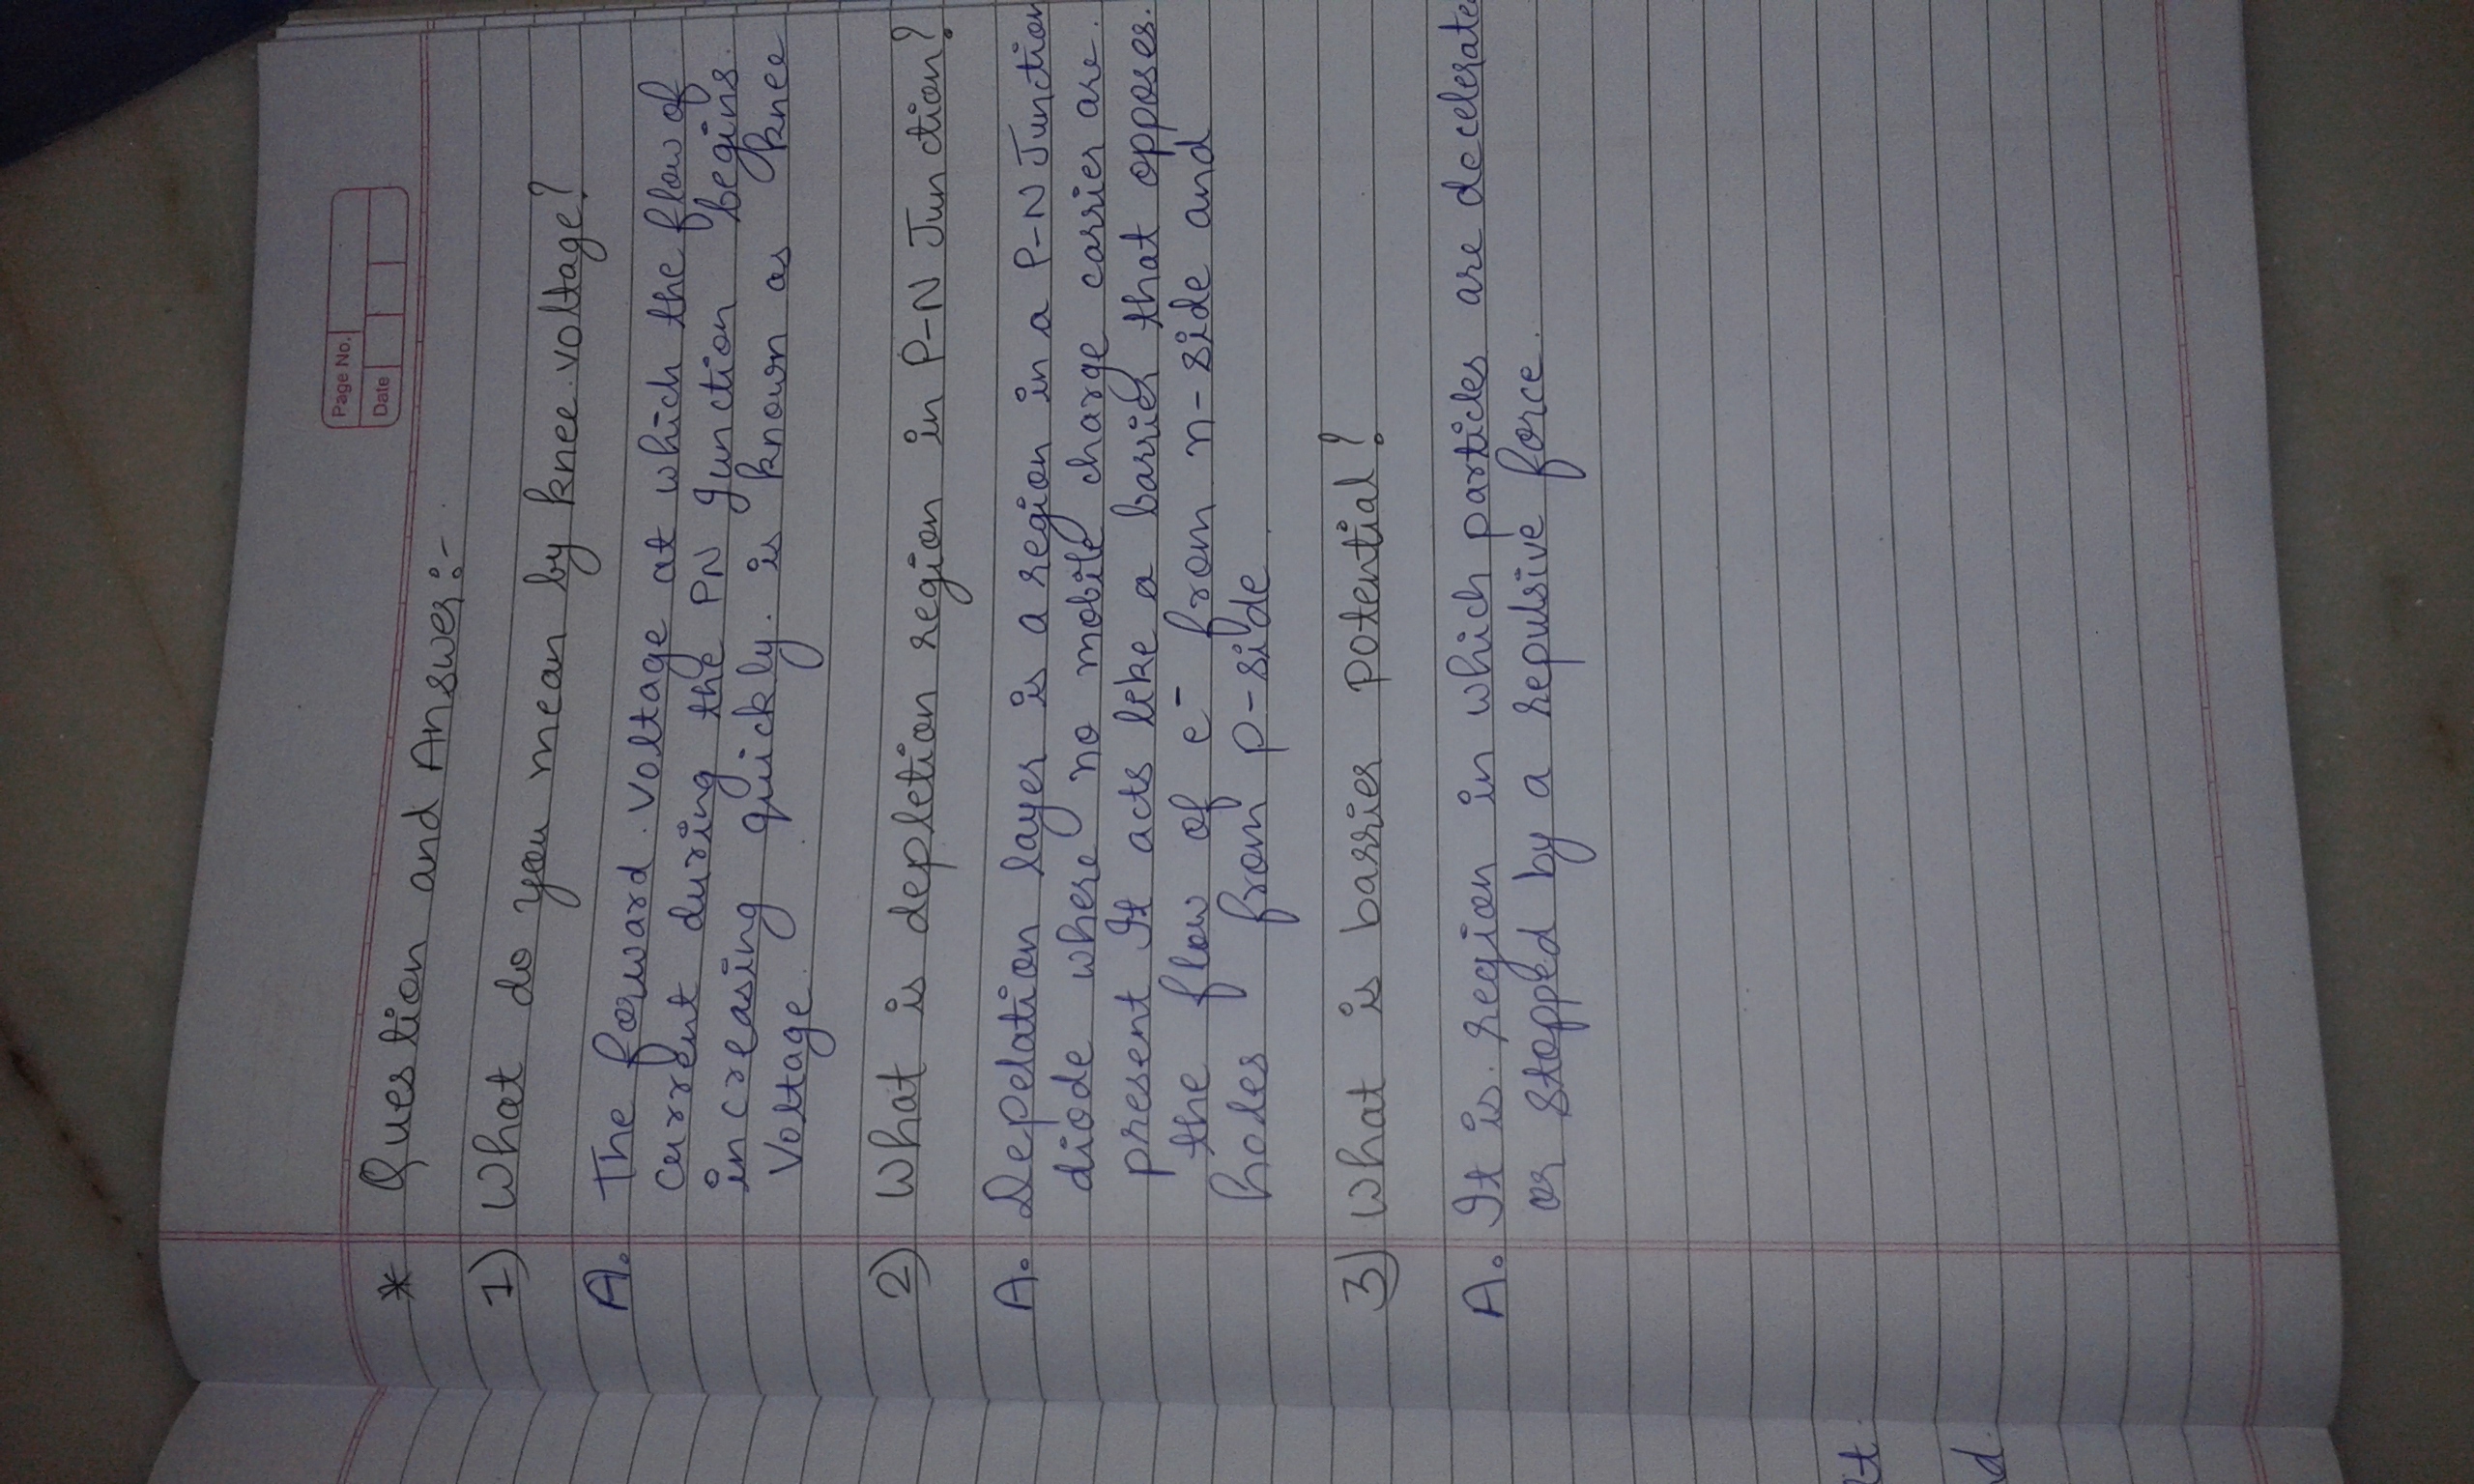 Page No.
Date
* Question and Answer:-
1) What do you mean by knee voltage?
A. The forward voltage at which the flow of
current during the PN Junction begins
increasing quickly. is known as knee
Voltage.
2) What is depletion region in P-N Junction?
A. Depelation layer is a region in a P-N Junction
diode where no mobile charge carrier are.
present It acts like a barrier that opposes.
the flow of e⁻ from n-side and
holes from p-side.
3) What is barrier potential?
A. It is region in which particles are decelerate
or stopped by a repulsive force.